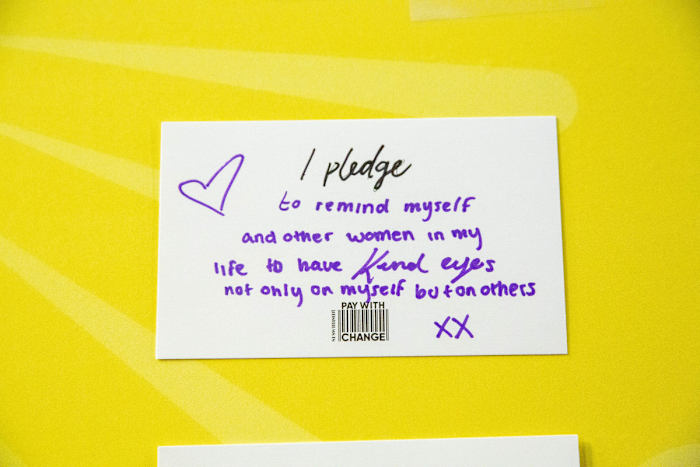 I pledge
to remind myself
and other women in my
life to have Kind eyes
not only on myself but on others
PAY WITH
CHANGE
XX